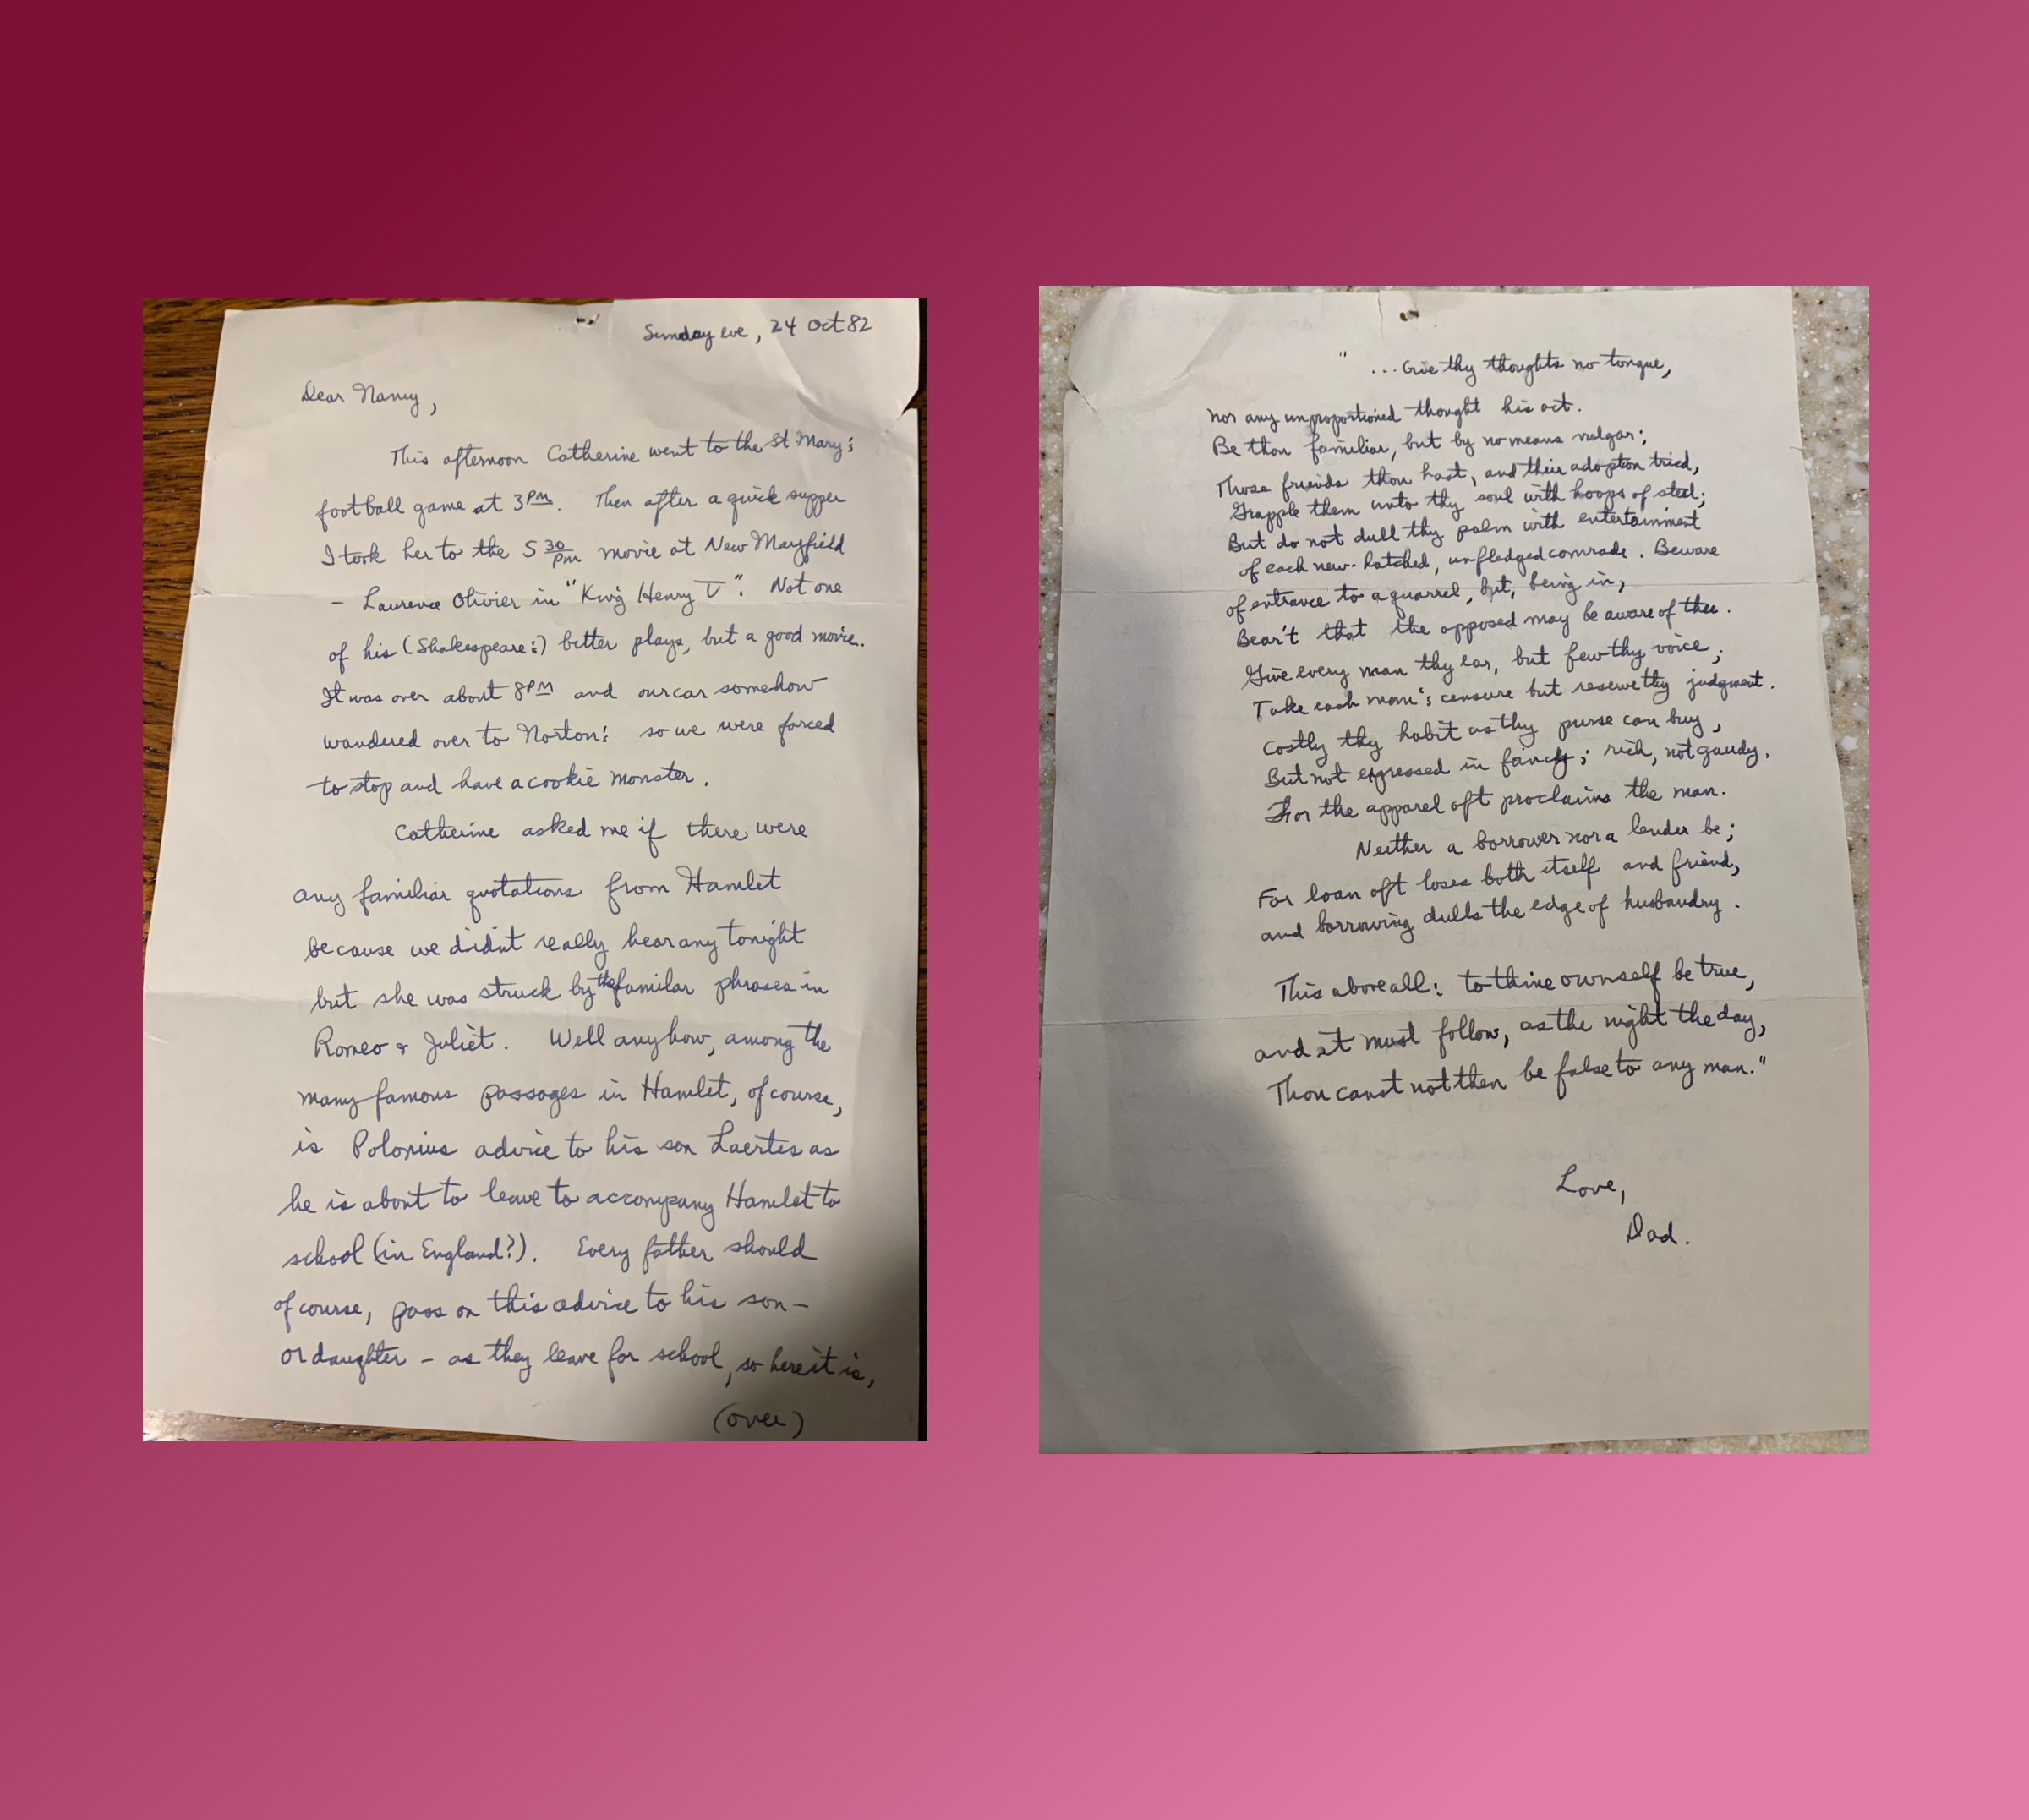 Sunday eve, 24 Oct 82
Dear Nancy,
This afternoon Catherine went to the St Mary's
football game at 3PM. Then after a quick supper
I took her to the 5 30 PM movie at New Mayfield
- Laurence Olivier in "King Henry V". Not one
of his (Shakespeare's) better plays, but a good movie.
It was over about 8PM and our car somehow
wandered over to Norton's so we were forced
to stop and have a cookie monster.
Catherine asked me if there were
any familiar quotations from Hamlet
because we didn't really hear any tonight
but she was struck by the familar phrases in
Romeo & Juliet. Well anyhow, among the
many famous passages in Hamlet, of course,
is Polonius advice to his son Laertes as
he is about to leave to accompany Hamlet to
school (in England?). Every father should
of course, pass on this advice to his son-
or daughter - as they leave for school, so here it is,
(over)
"...Give thy thoughts no tongue,
nor any unproportioned thought his act.
Be thou familiar, but by no means vulgar;
Those friends thou hast, and their adoption tried,
Grapple them unto thy soul with hoops of steel;
But do not dull thy palm with entertainment
of each new-hatched, unfledged comrade. Beware
of entrance to a quarrel, but, being in,
Bear't that the opposed may be aware of thee.
Give every man thy ear, but few thy voice;
Take each man's censure but reserve thy judgment.
Costly thy habit as thy purse can buy,
But not expressed in fancy; rich, not gaudy.
For the apparel oft proclaims the man.
Neither a borrower nor a lender be;
For loan oft loses both itself and friend,
and borrowing dulls the edge of husbandry.
This above all: to thine ownself be true,
and it must follow, as the night the day,
Thou canst not then be false to any man."
Love,
Dad.